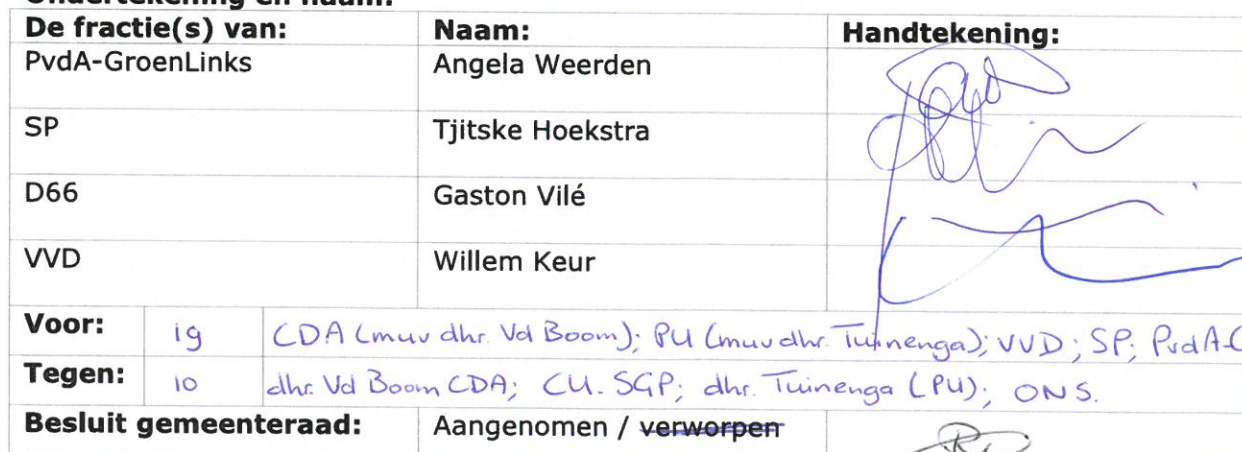 Ondertekening en naam:
De fractie(s) van: Naam: Handtekening:
PvdA-GroenLinks Angela Weerden
SP Tjitske Hoekstra
D66 Gaston Vilé
VVD Willem Keur
Voor: 19 CDA (muv dhr. Vd Boom); PU (muv dhr. Tuinenga); VVD; SP; PvdA-G
Tegen: 10 dhr. Vd Boom CDA; CU-SGP; dhr. Tuinenga (PU); ONS.
Besluit gemeenteraad: Aangenomen / verworpen